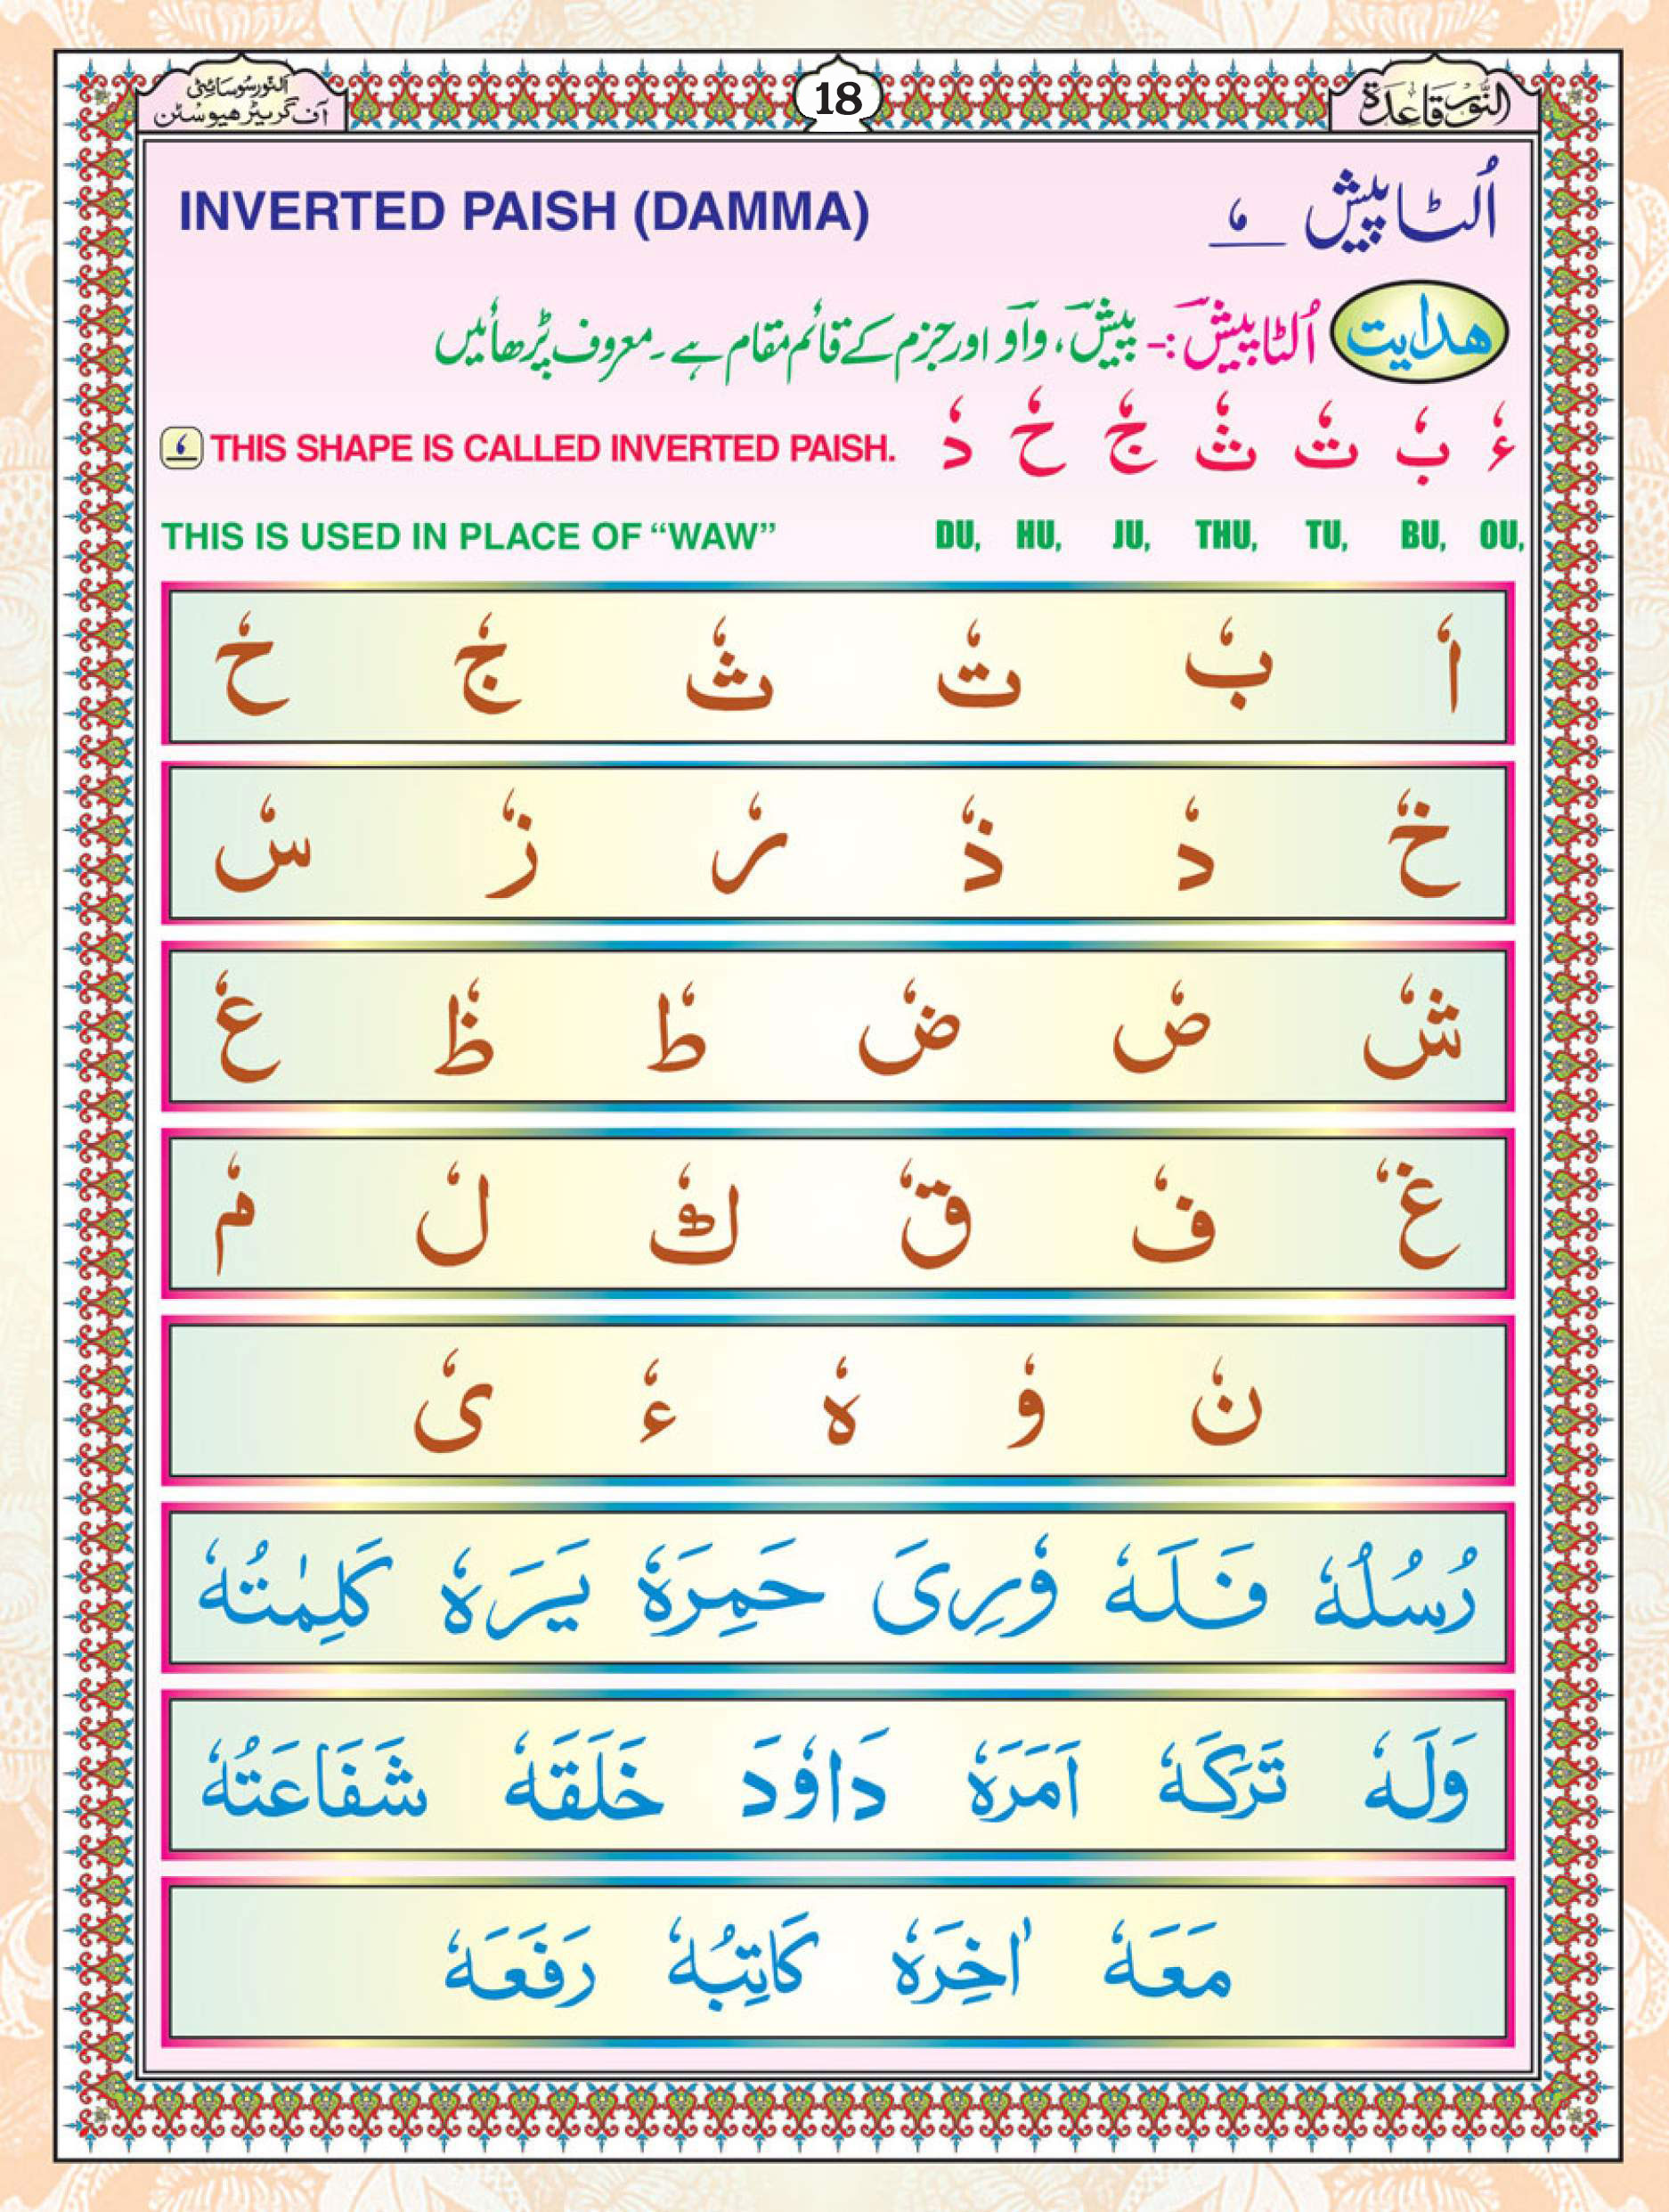 النُّور قاعدة
18
النّور سُوسائِٹی
آف گریٹر هیوسٹن
اُلٹا پیش ـٗ
INVERTED PAISH (DAMMA)
هدایت
اُلٹا پیش :- پیش، واو اور جزم کے قائم مقام ہے ۔ معروف پڑھائیں
ءٗ بٗ تٗ ثٗ جٗ حٗ دٗ
ـٗ THIS SHAPE IS CALLED INVERTED PAISH.
THIS IS USED IN PLACE OF “WAW”
DU, HU, JU, THU, TU, BU, OU,
اٗ بٗ تٗ ثٗ جٗ حٗ
خٗ دٗ ذٗ رٗ زٗ سٗ
شٗ صٗ ضٗ طٗ ظٗ عٗ
غٗ فٗ قٗ كٗ لٗ مٗ
نٗ وٗ هٗ ءٗ یٗ
رُسُلُهٗ فَلَهٗ وٗرِیَ حَمِرَهٗ یَرَهٗ كَلِمٰتُهٗ
وَلَهٗ تَرَكَهٗ اَمَرَهٗ دَاوٗدَ خَلَقَهٗ شَفَاعَتُهٗ
مَعَهٗ اٰخِرَهٗ كَاتِبُهٗ رَفَعَهٗ